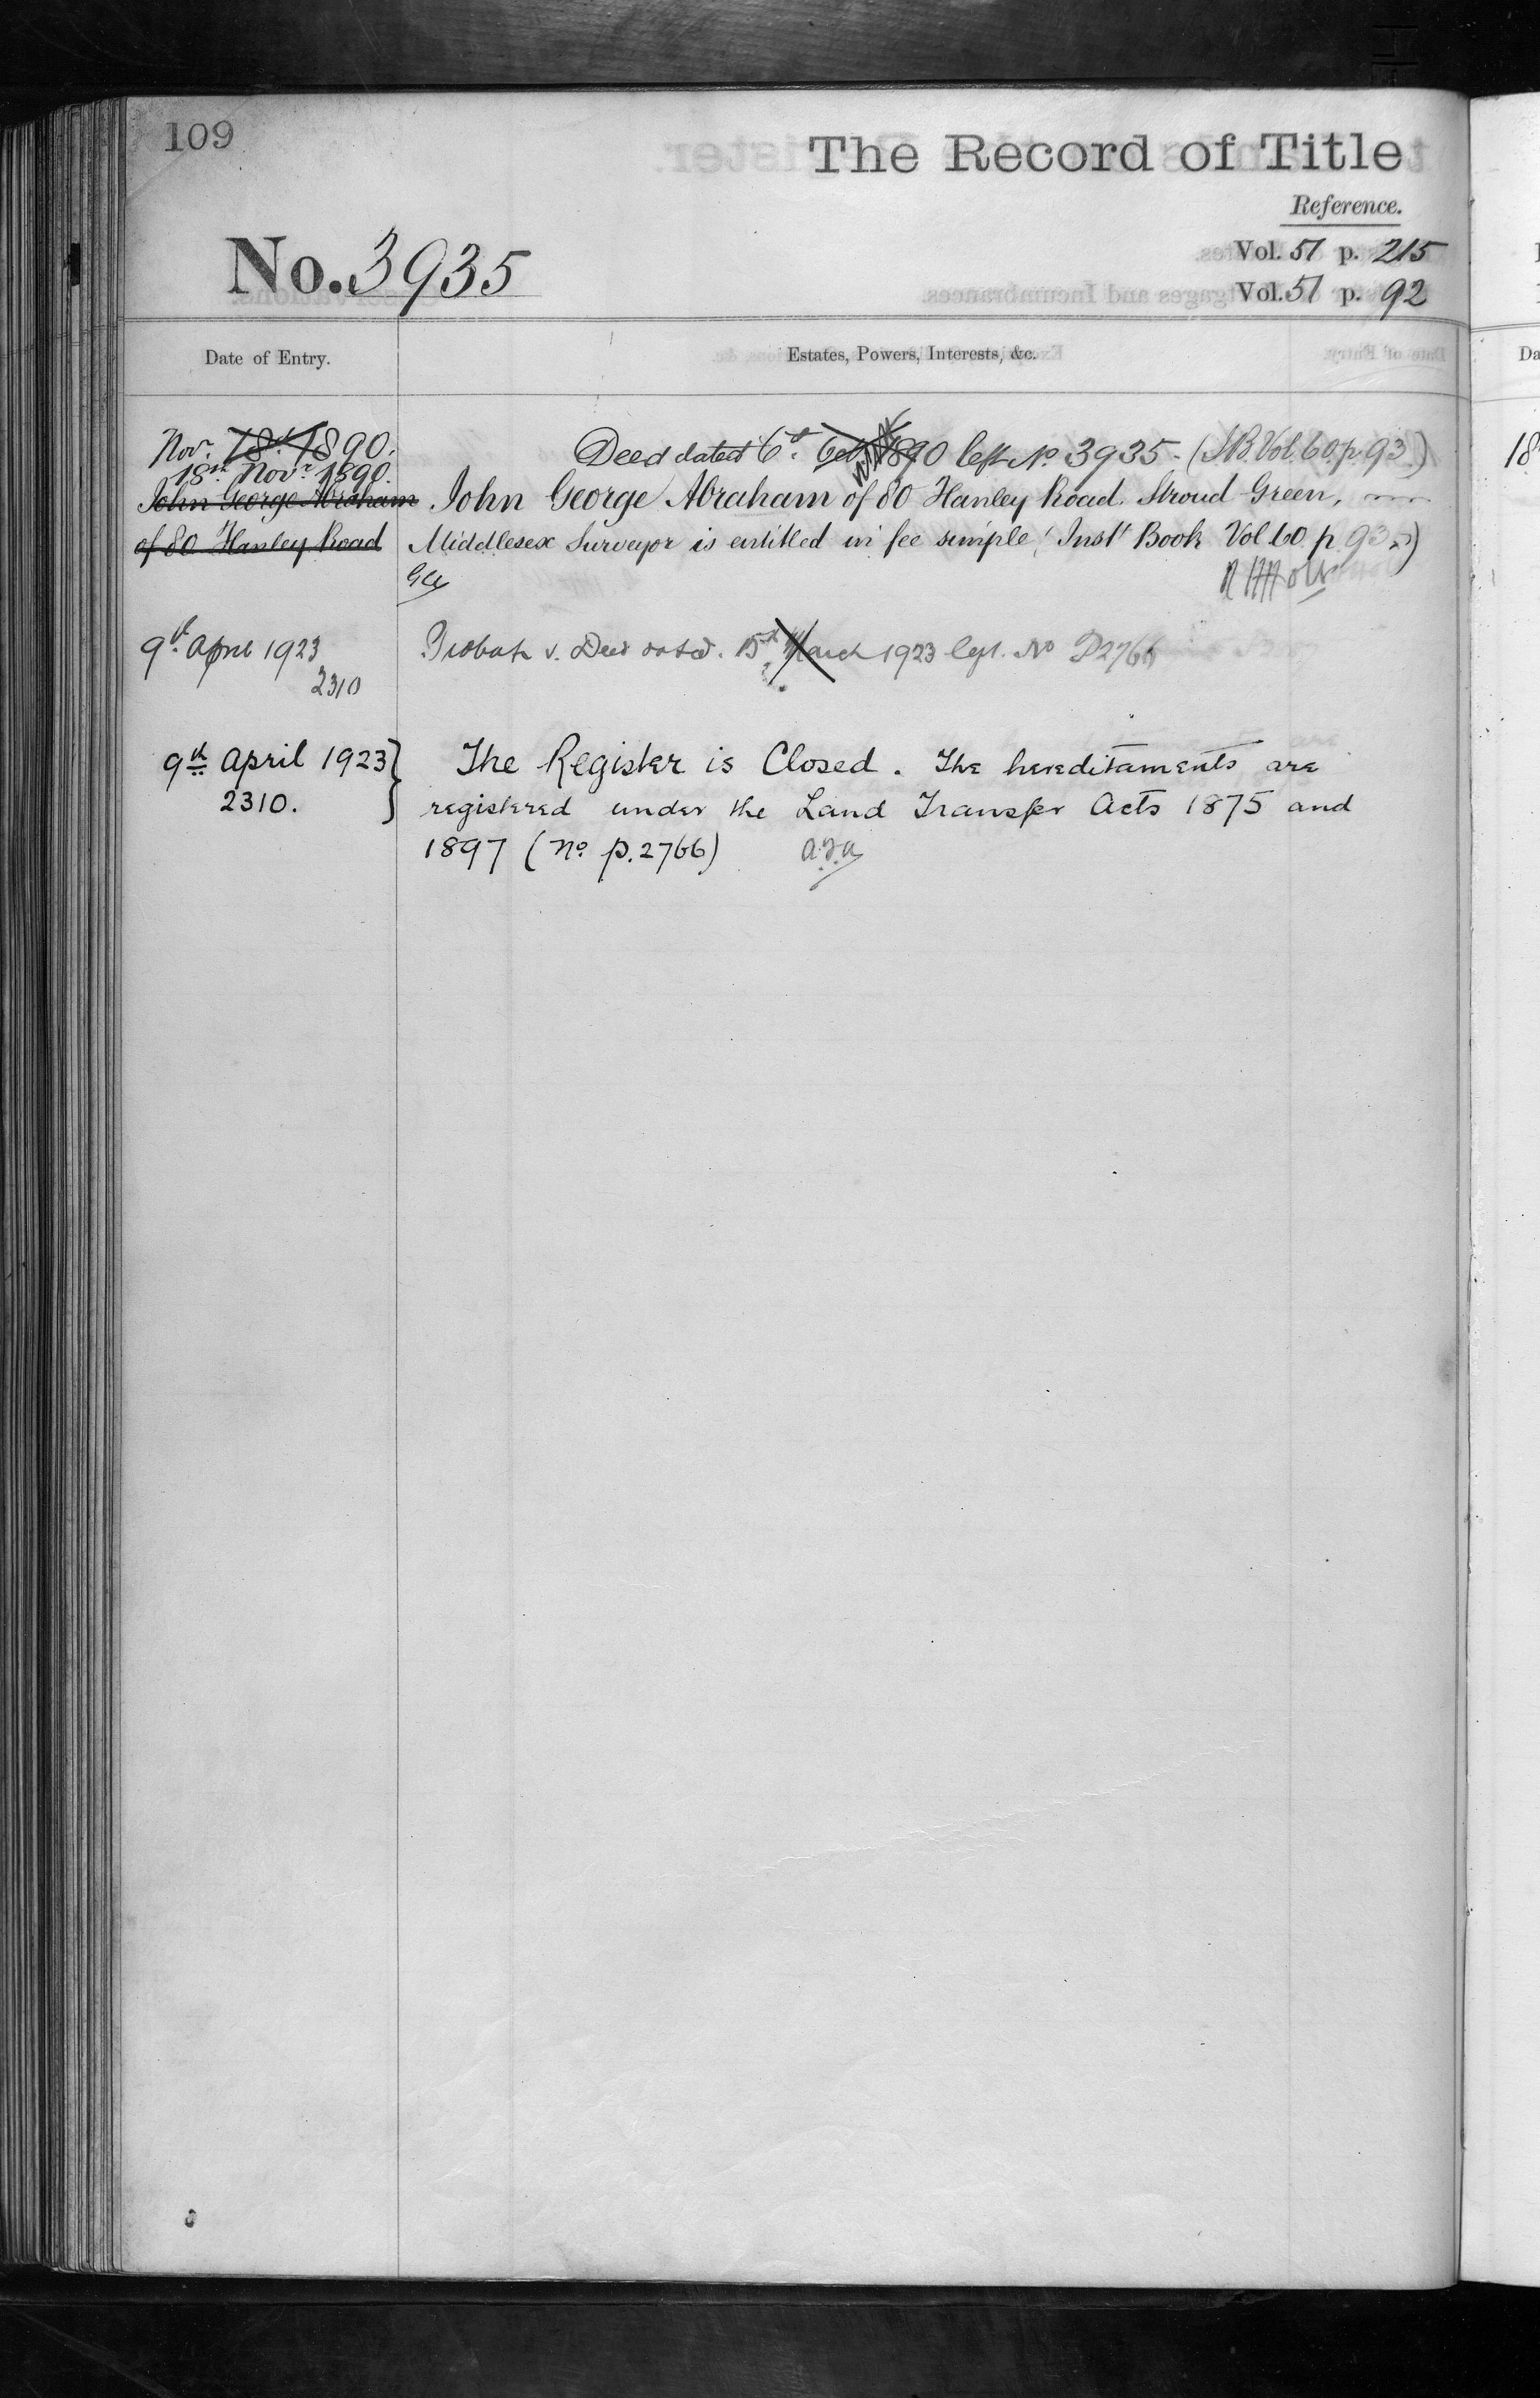 109
The Record of Title
Reference.
No. 3935
Vol. 51 p. 215
Vol. 51 p. 92
Date of Entry.
Estates, Powers, Interests, &c.
Novr. 18th 1890.
18th Novr 1890.
Deed dated 6th Octr 1890 left No. 3935 - (I.B. Vol. 60. p. 93.)
John George Abraham
John George Abraham of 80 Hanley Road. Stroud Green,
of 80 Hanley Road
Middlesex Surveyor is entitled in fee simple (Inst Book Vol 60 p 93.)
9th April 1923
v. Deed dated. 15th March 1923 No P2766
2310
9th April 1923 }
The Register is Closed. The hereditaments are
2310. }
registered under the Land Transfer Acts 1875 and
1897 (No. P. 2766)